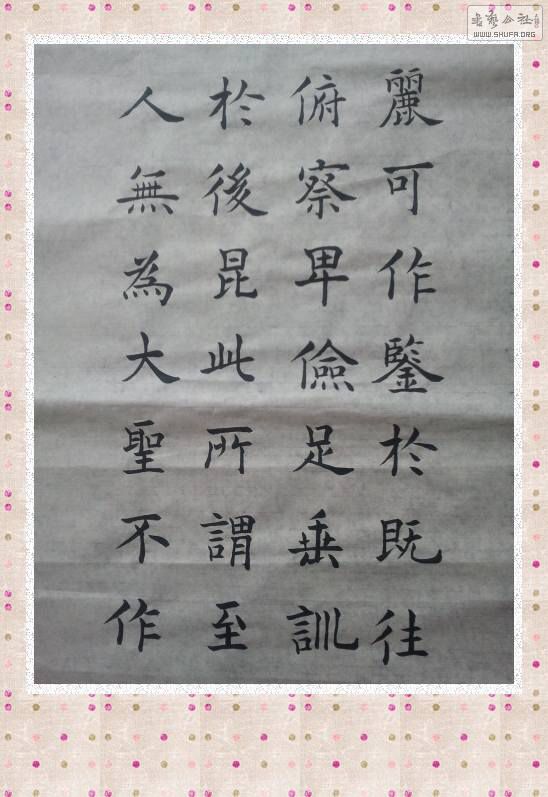 麗可作鑒於既往
俯察卑儉足垂訓
於後昆此所謂至
人無為大聖不作
书艺公社
WWW.SHUFA.ORG